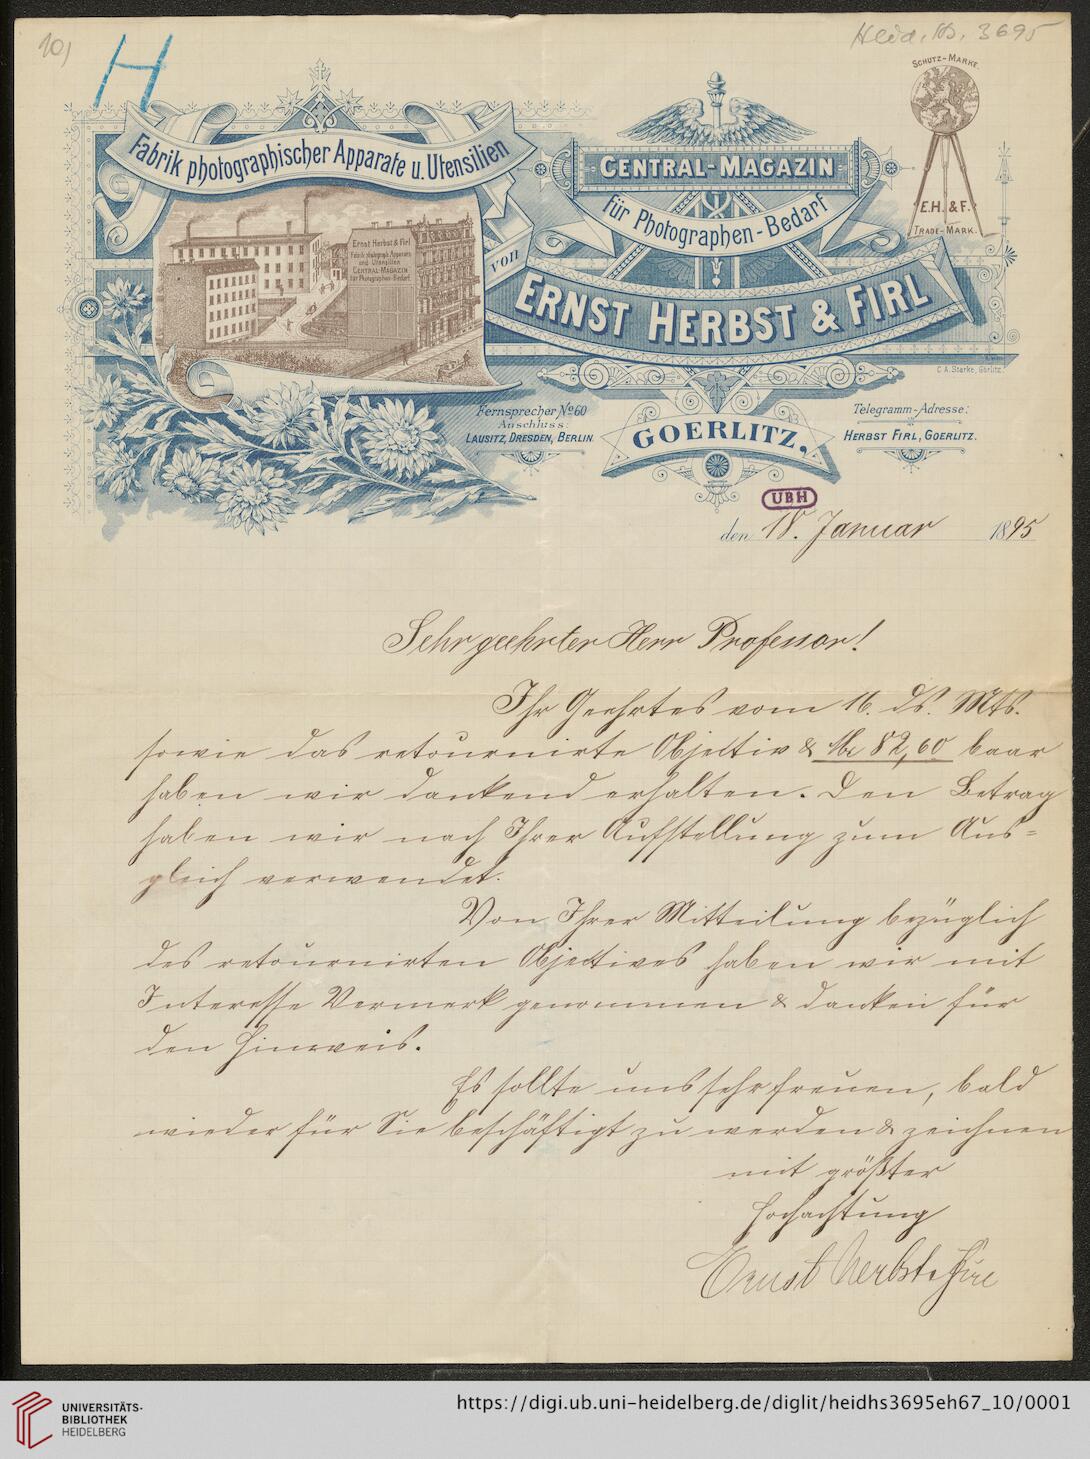 10)
H
Heid. Hs. 3695
SCHUTZ-MARKE.
E.H. & F.
TRADE-MARK.
Fabrik photographischer Apparate u. Utensilien
Ernst Herbst & Firl
Fabrik photograph. Apparate
und Utensilien
CENTRAL-MAGAZIN
für Photographen-Bedarf.
von
CENTRAL-MAGAZIN
für Photographen-Bedarf
ERNST HERBST & FIRL
C. A. Starke, Görlitz.
Fernsprecher No 60
Anschluss:
LAUSITZ, DRESDEN, BERLIN
GOERLITZ,
Telegramm-Adresse:
HERBST FIRL, GOERLITZ.
UBH
den 18. Januar 1895
Sehr geehrter Herr Professor!
Ihr Geehrtes vom 16. ds. Mts.
sowie das retournirte Objectiv & Mk 82,60 baar
haben wir dankend erhalten. Den Betrag
haben wir nach Ihrer Aufstellung zum Aus=
gleich verwendet.
Von Ihrer Mitteilung bezüglich
des retournirten Objectives haben wir mit
Interesse Vermerk genommen & danken für
den Hinweis.
Es sollte uns sehr freuen, bald
wieder für Sie beschäftigt zu werden & zeichnen
mit größter
Hochachtung
Ernst Herbst & Firl
UNIVERSITÄTS-
BIBLIOTHEK
HEIDELBERG
https://digi.ub.uni-heidelberg.de/diglit/heidhs3695eh67_10/0001